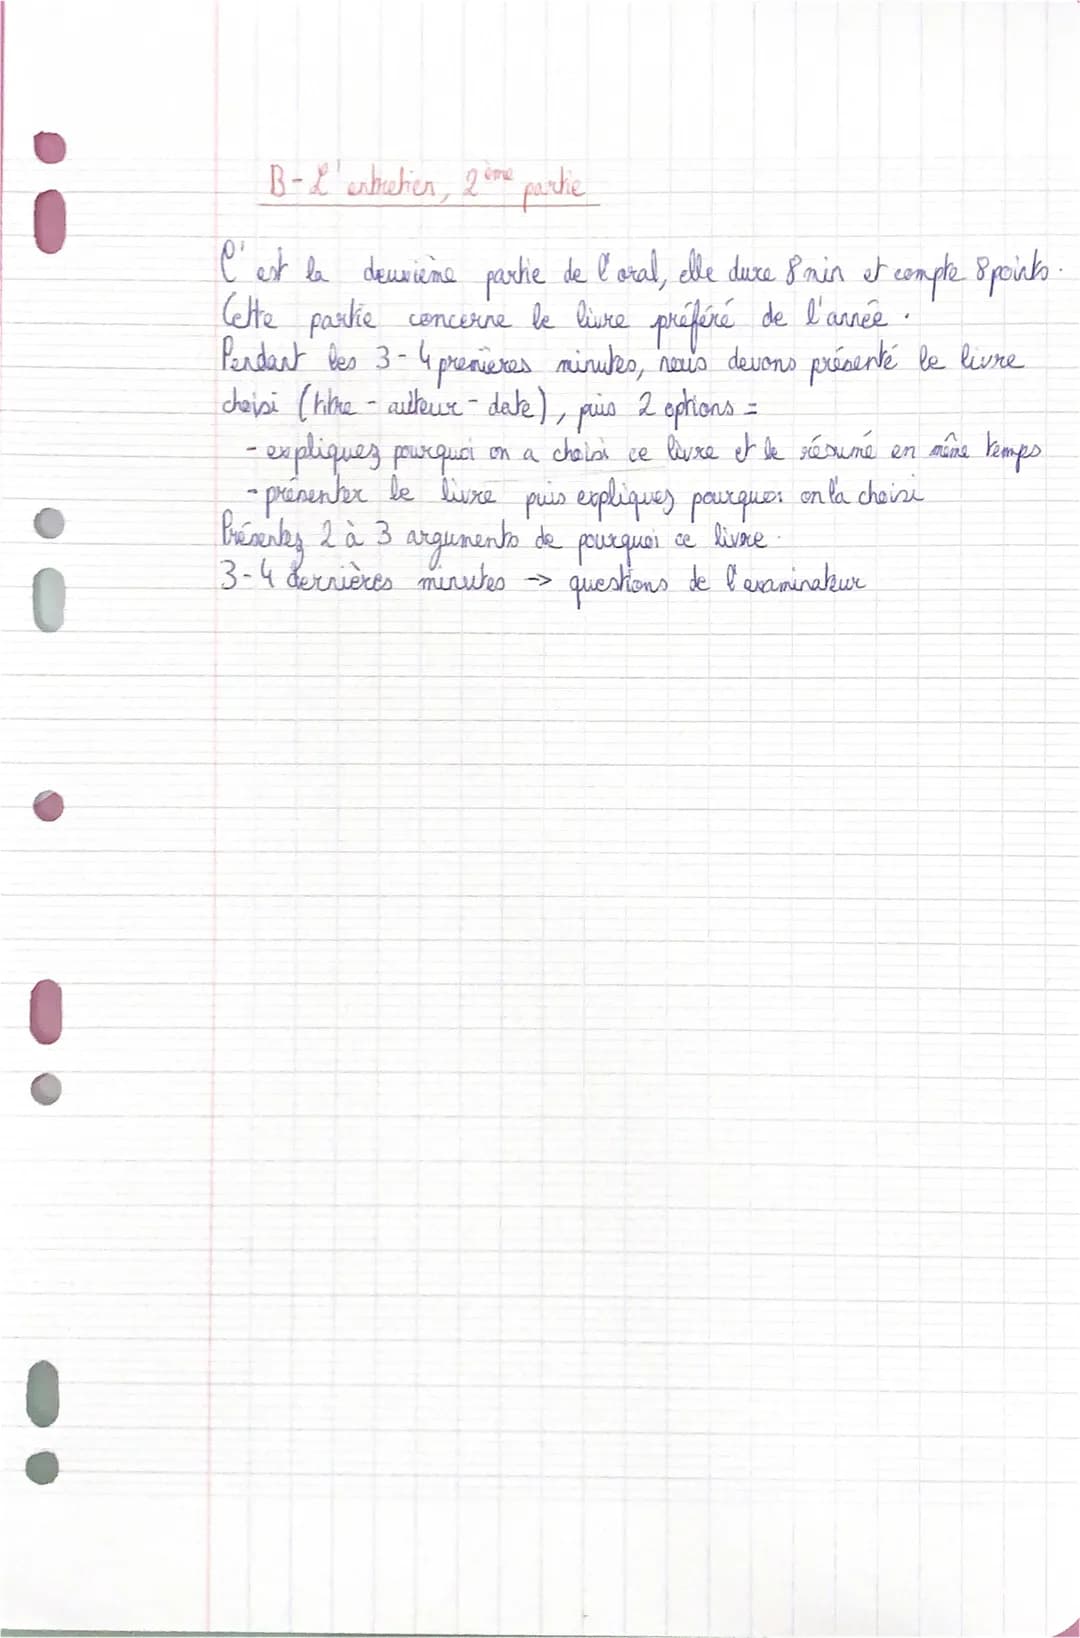 B-L'entretien, 2ème partie
C'est la deuxième partie de l'oral, elle dure 8 min et compte 8 points.
Cette partie concerne le livre préféré de l'année.
Pendant les 3-4 premières minutes, nous devons présenté le livre
choisi (titre - auteur - date), puis 2 options =
- expliquez pourquoi on a choisi ce livre et le résumé en même temps
- présenter le livre puis expliquez pourquoi on l'a choisi
Présentez 2 à 3 arguments de pourquoi ce livre.
3-4 dernières minutes -> questions de l'examinateur